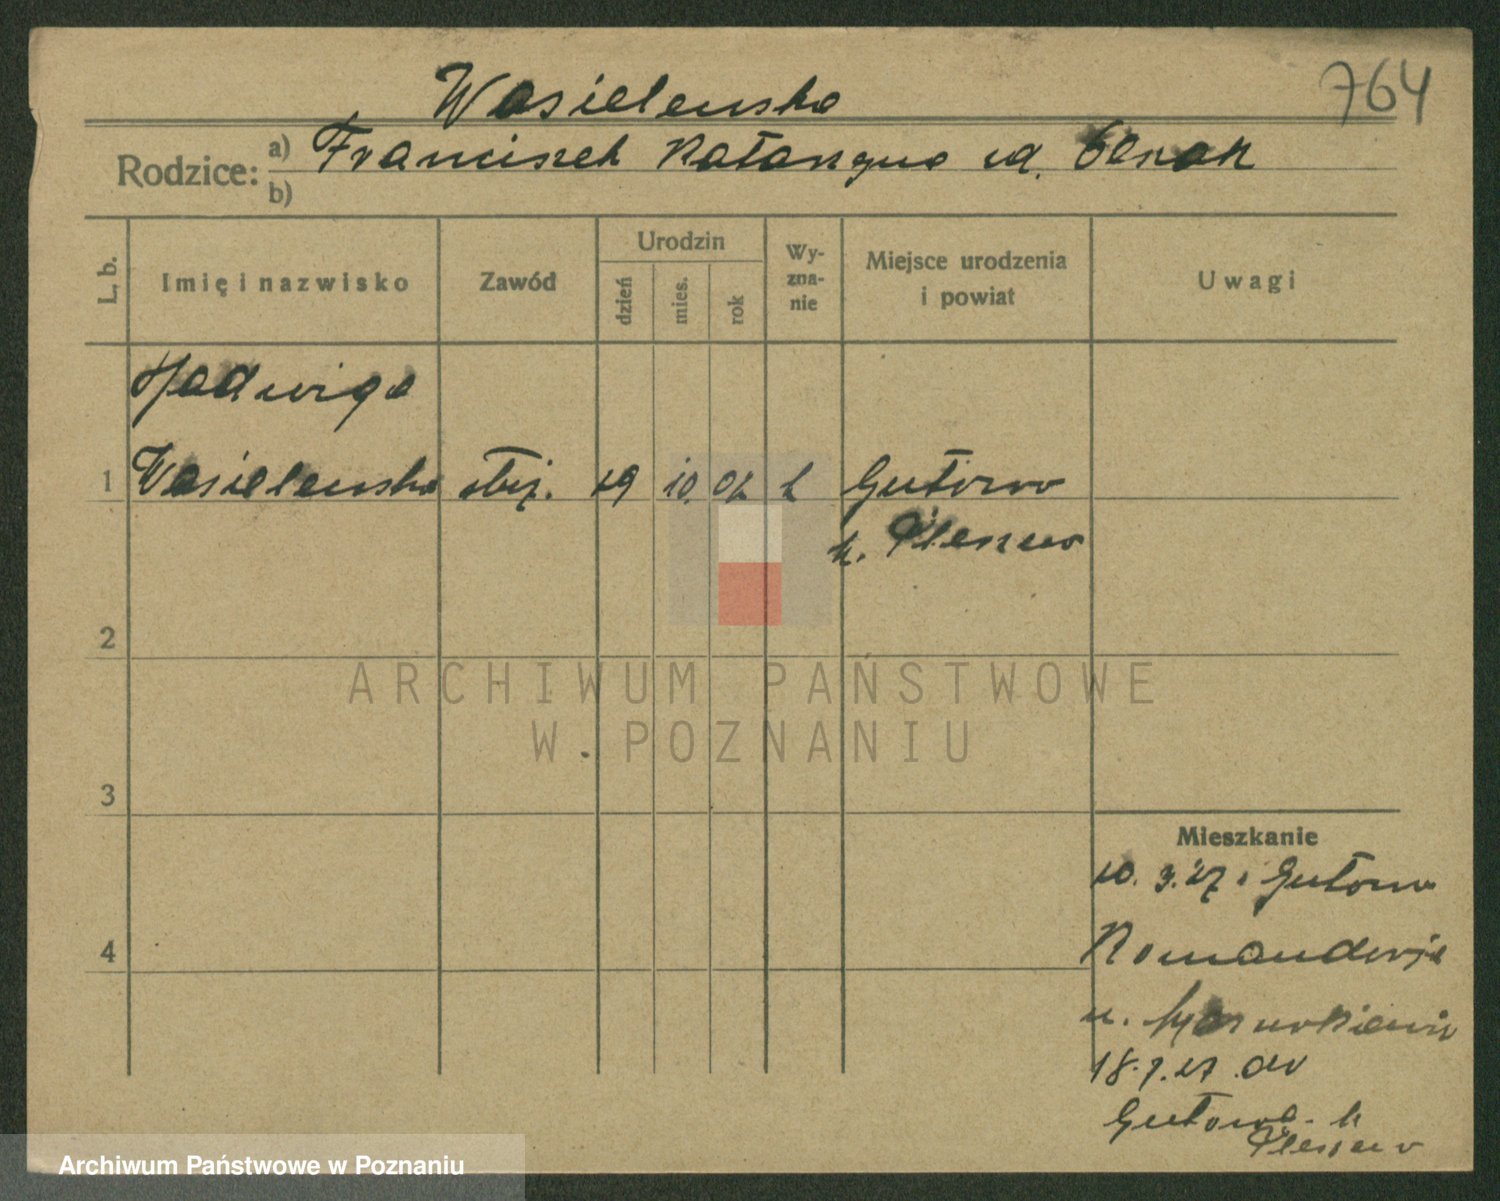 764
Wasielewska
Rodzice: a) Franciszek Katarzyna zd.
b)
L. b. Imię i nazwisko Zawód Urodzin dzień mies. rok Wyznanie Miejsce urodzenia i powiat Uwagi
Jadwiga
1 Wasielewska służ. 19 10. 02 k Gutowo
k. Pleszew
2
ARCHIWUM PAŃSTWOWE
W POZNANIU
3
Mieszkanie
10. 3. 27 Gutowo
4 Komandorja
u.
18. 7. 27 do
Gutowa k
Pleszew
Archiwum Państwowe w Poznaniu